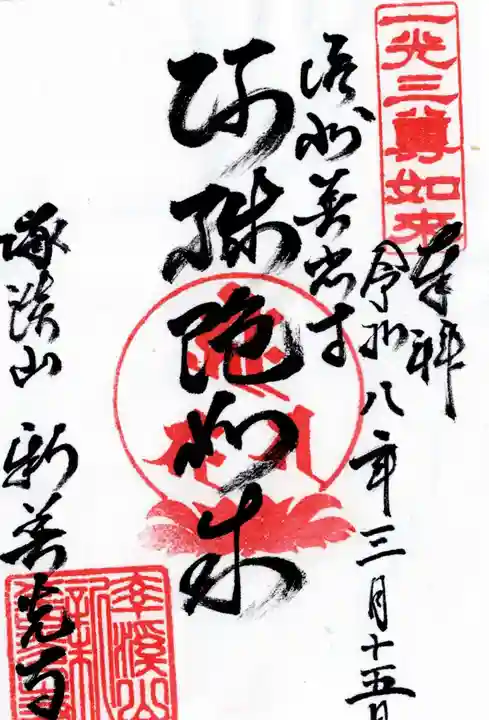 一光三尊如来
奉拝
令和八年三月十五日
信州善光寺
阿弥陀如来
新善光寺